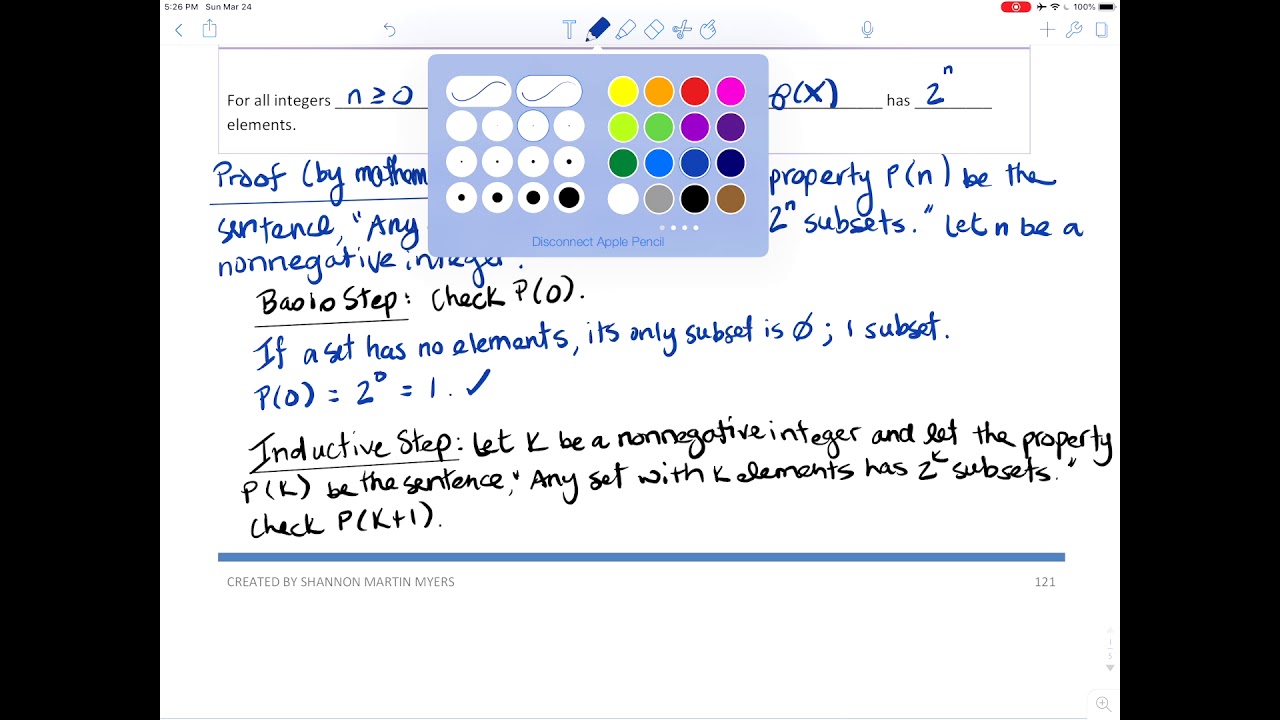 5:26 PM Sun Mar 24 100%
T
For all integers n ≥ 0 ℘(X) has 2^n
elements.
Proof (by mathem property P(n) be the
sentence, "Any 2^n subsets." Let n be a
nonnegative integer.
Disconnect Apple Pencil
Basis Step: Check P(0).
If a set has no elements, its only subset is ∅; 1 subset.
P(0) = 2^0 = 1. ✓
Inductive Step: Let K be a nonnegative integer and let the property
P(K) be the sentence, "Any set with K elements has 2^K subsets."
Check P(K+1).
CREATED BY SHANNON MARTIN MYERS 121
1
5